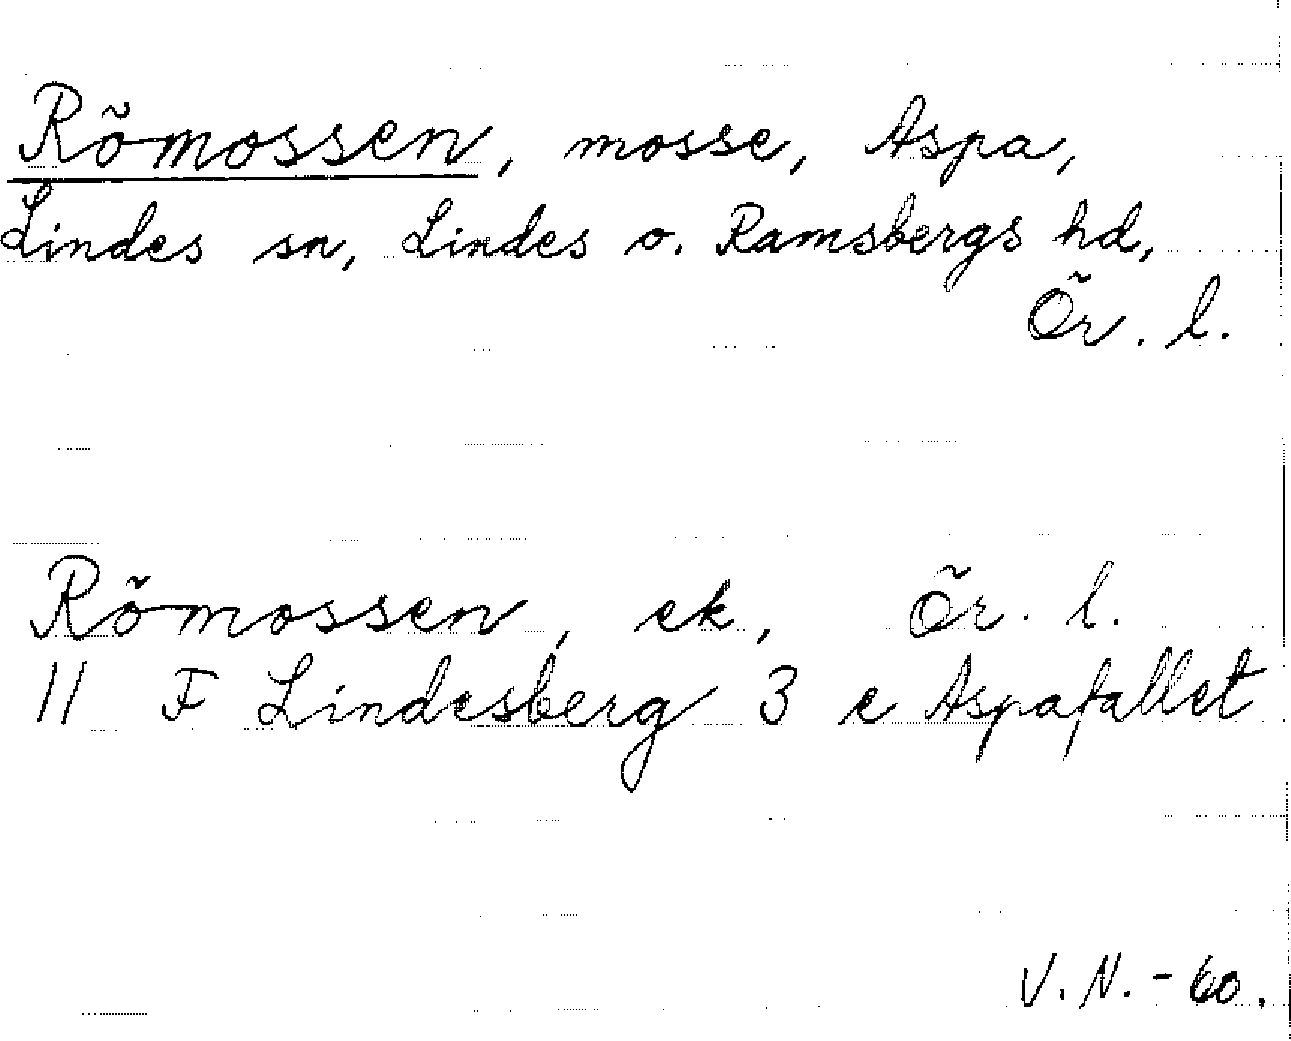 Römossen, mosse, Aspa,
Lindes sn, Lindes o. Ramsbergs hd,
Ör. l.
Römossen, ek, Ör. l.
11 F Lindesberg 3 e Aspafallet
V. N. - 60.